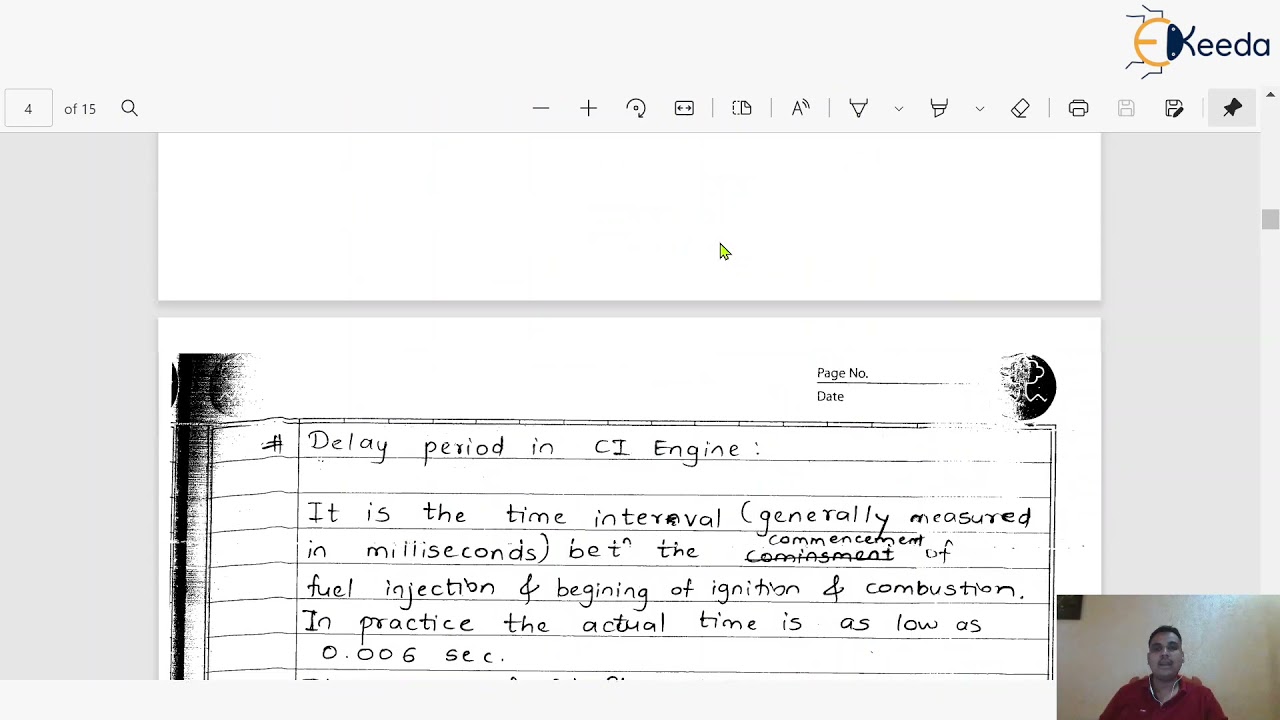 EKeeda
4 of 15
Page No.
Date
# Delay period in CI Engine :
It is the time interval (generally measured
in milliseconds) betⁿ the commencement of
fuel injection & begining of ignition & combustion.
In practice the actual time is as low as
0.006 sec.